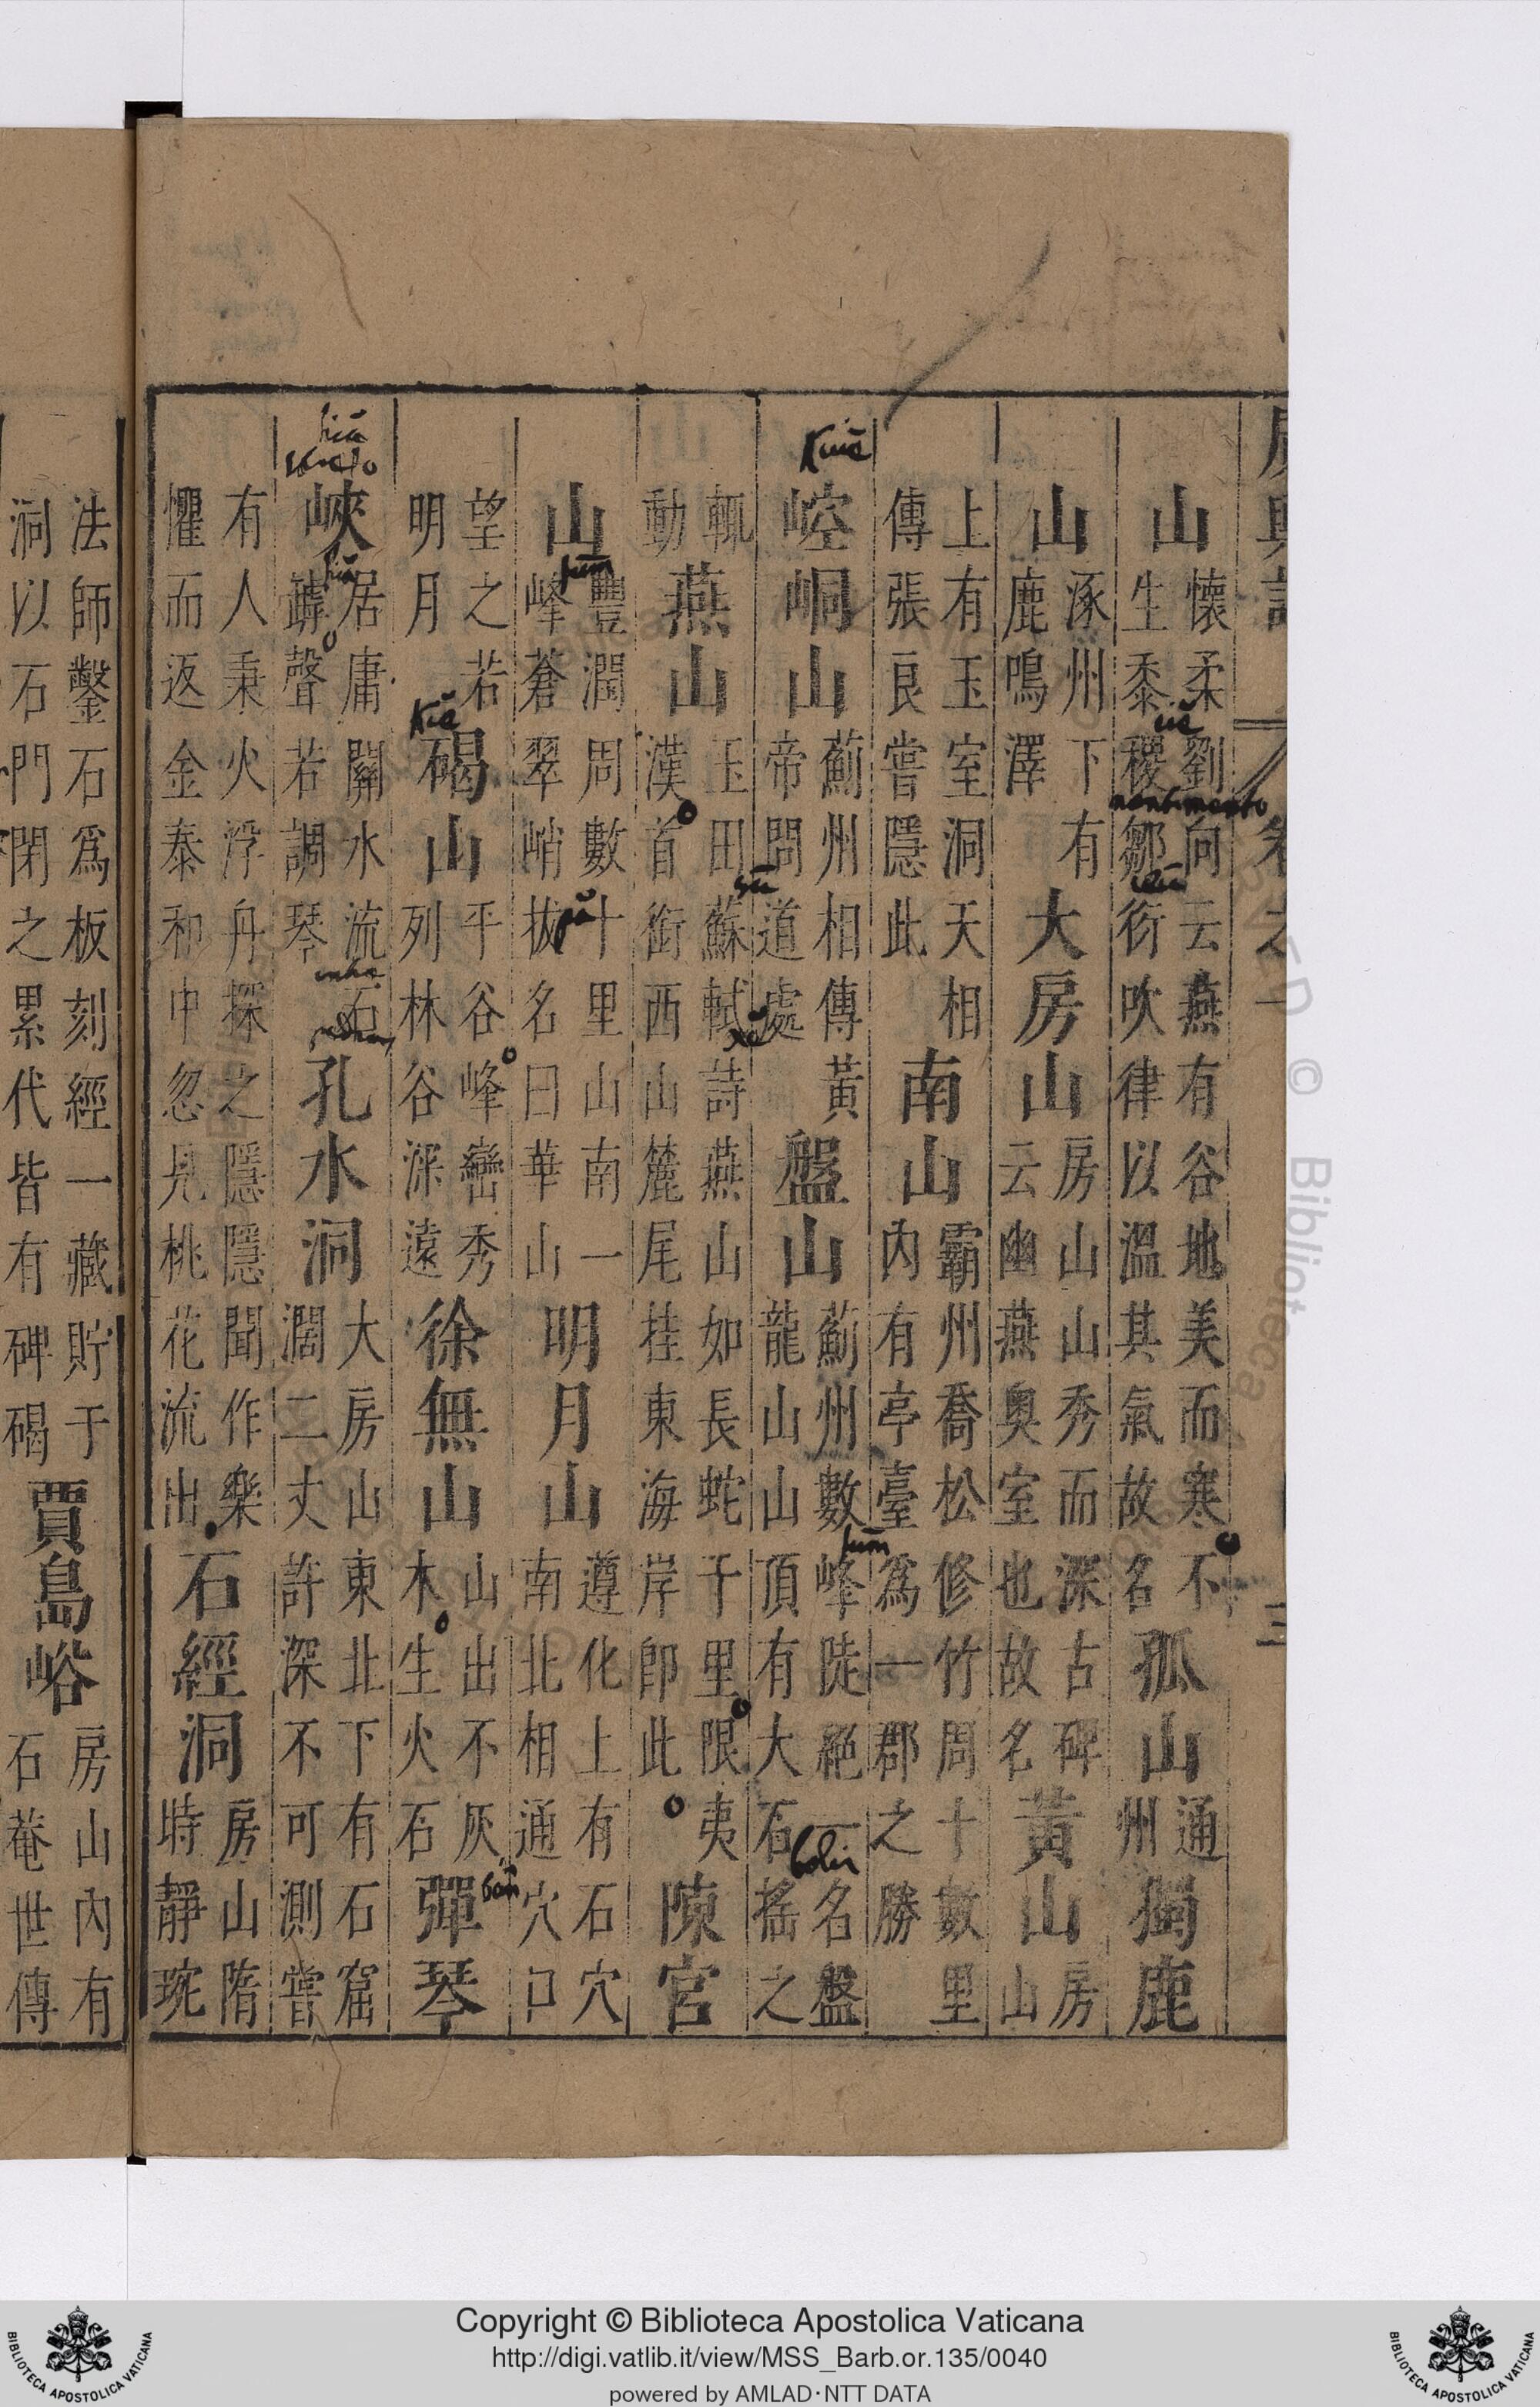 山 懷柔劉向云燕有谷地美而寒不生黍稷鄒衍吹律以溫其氣故名 孤山 通州 獨鹿
山 涿州下有鹿鳴澤 大房山 房山山秀而深古碑云幽燕奧室也故名 黃山 房山
上有玉室洞天相傳張良嘗隱此 南山 霸州喬松修竹周十數里內有亭臺爲一郡之勝
崆峒山 薊州相傳黃帝問道處 盤山 薊州數峰陡絕一名盤龍山山頂有大石搖之
輒動 燕山 玉田蘇軾詩燕山如長蛇千里限夷漢首銜西山麓尾挂東海岸即此 陳宮
山 豐潤周數十里山南一峰蒼翠峭拔名曰華山 明月山 遵化上有石穴穴南北相通穴口
望之若明月 碣山 平谷峰巒秀列林谷深遠 徐無山 山出不灰木生火石 彈琴
峽 居庸關水流石罅聲若調琴 孔水洞 大房山東北下有石窟濶二丈許深不可測嘗
有人秉火浮舟探之隱隱聞作樂懼而返金泰和中忽見桃花流出 石經洞 房山隋時靜琬
法師鑿石爲板刻經一藏貯于洞以石門閉之累代皆有碑碣 賈島峪 房山內有石菴世傳
Kiã
fum
Kiĕ
nantimento
sū
xĕ
pă
fum
bolir
Copyright © Biblioteca Apostolica Vaticana
http://digi.vatlib.it/view/MSS_Barb.or.135/0040
powered by AMLAD·NTT DATA
BIBLIOTECA APOSTOLICA VATICANA
BIBLIOTECA APOSTOLICA VATICANA